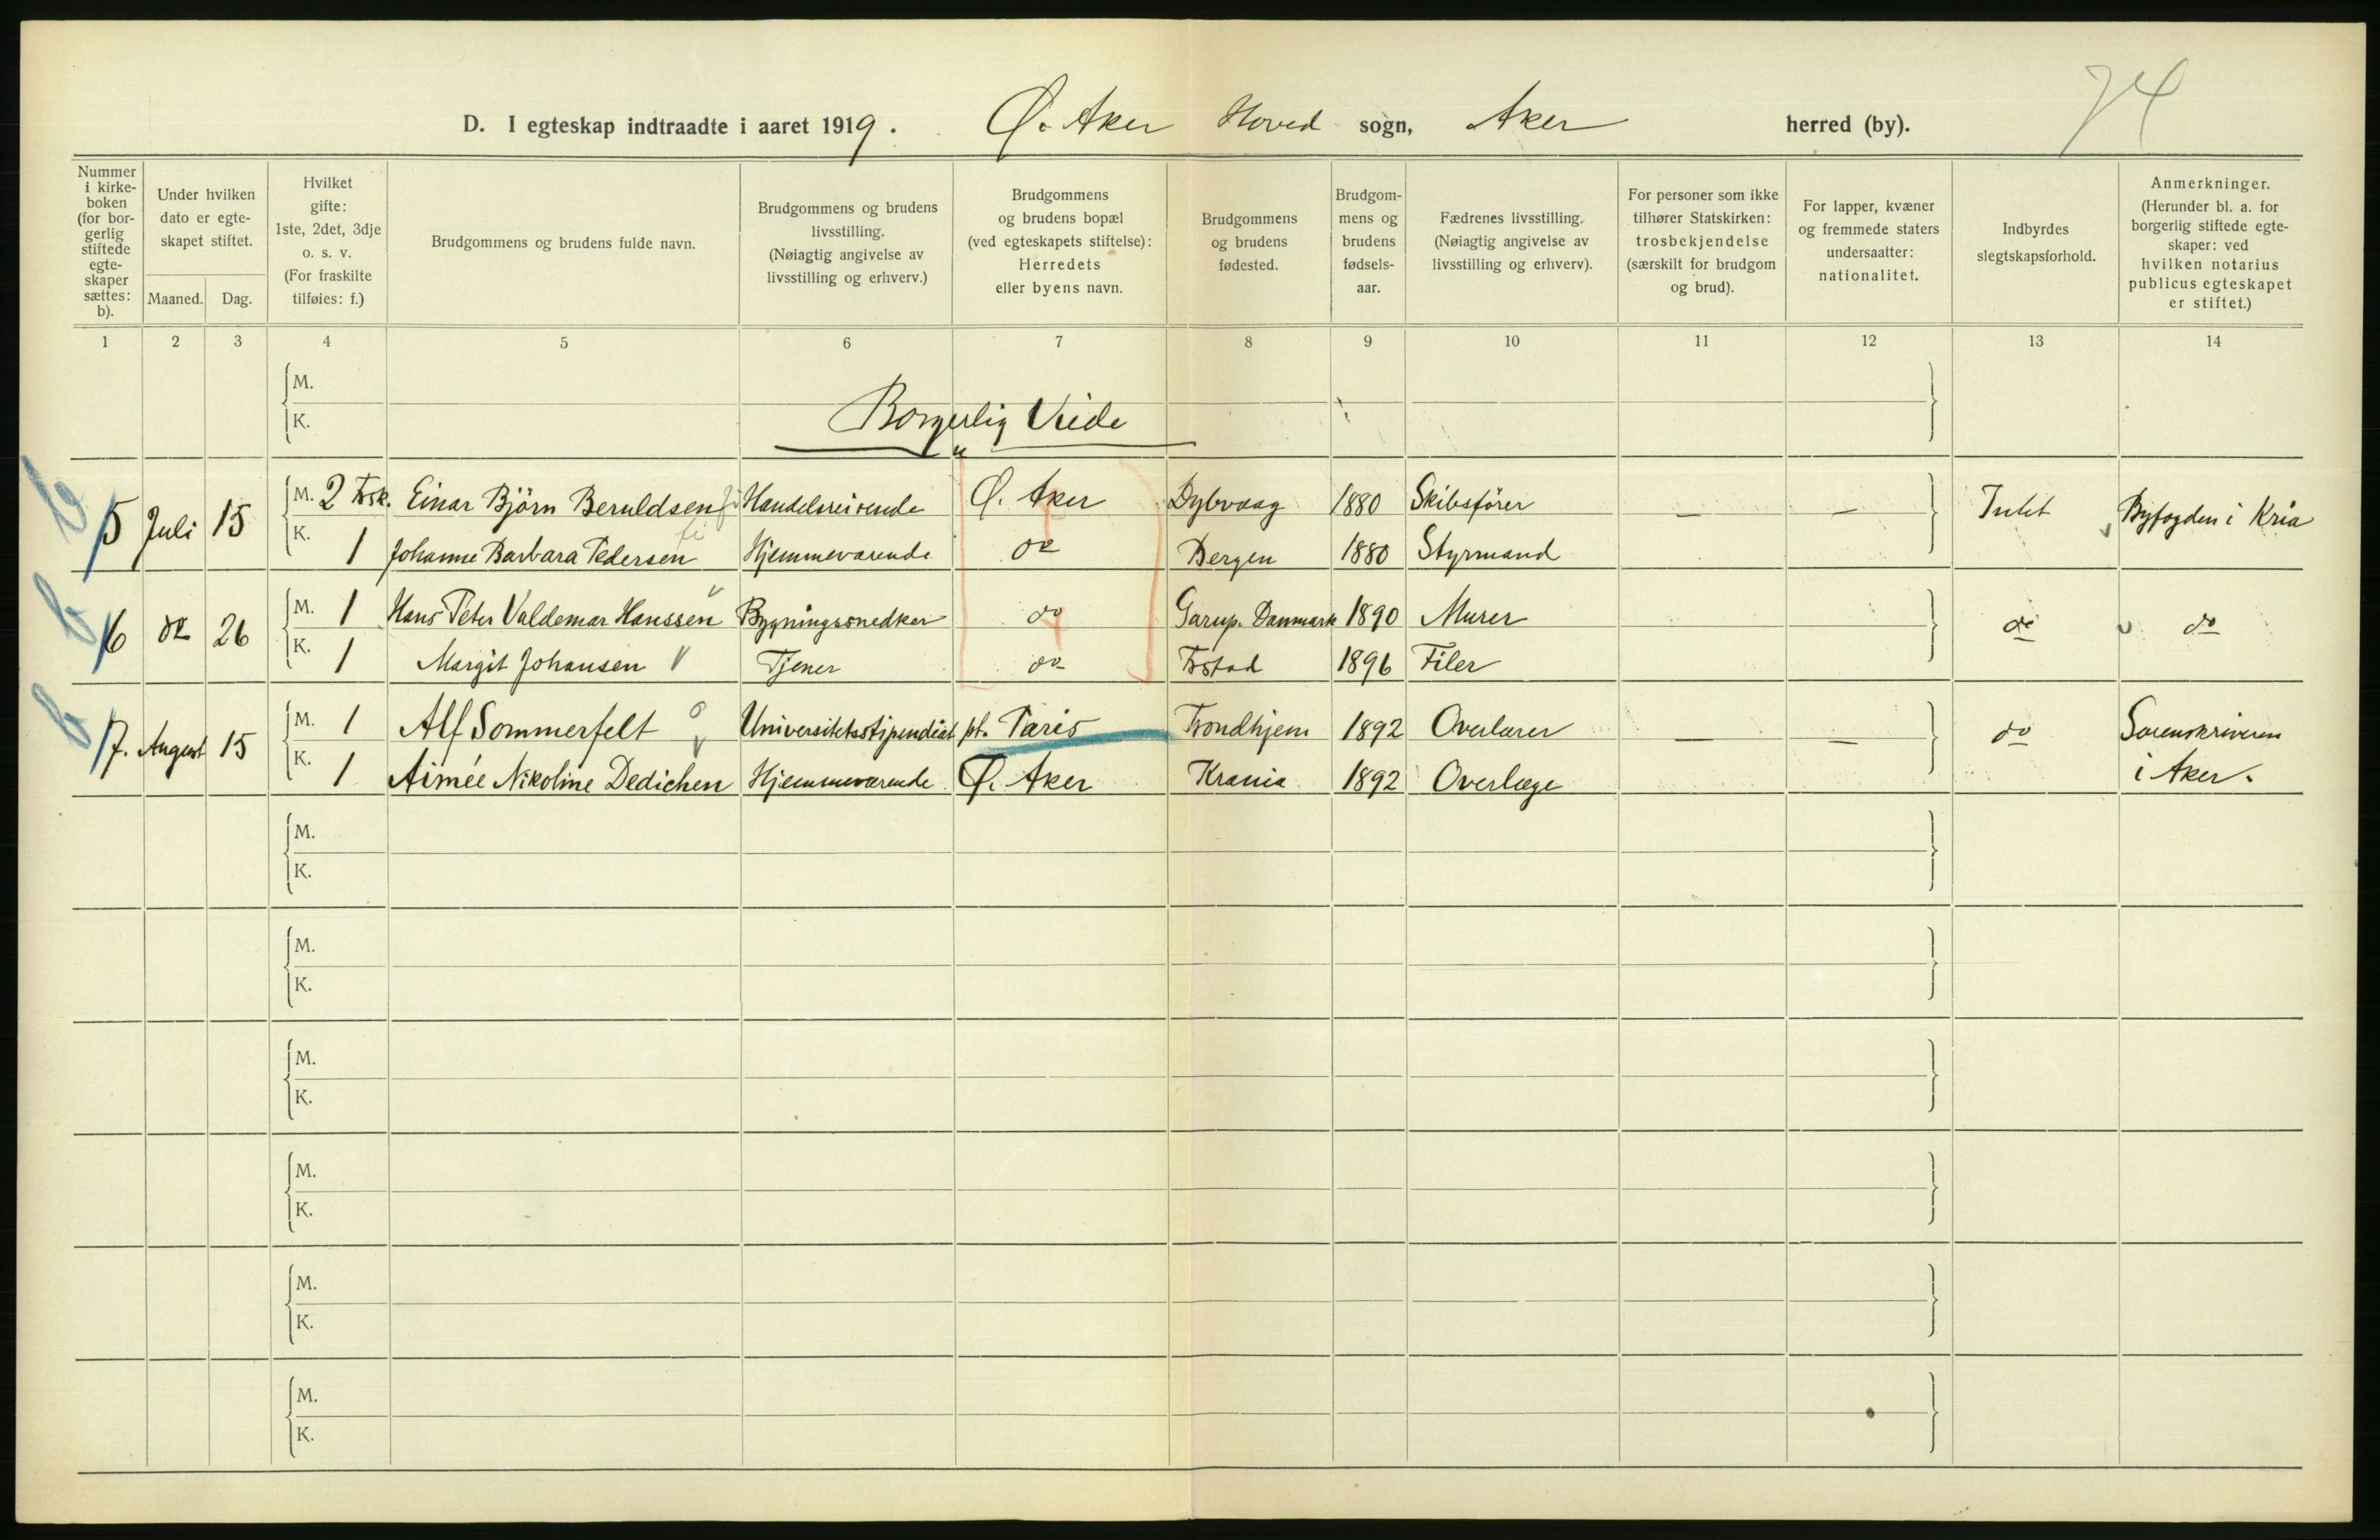 D. I egteskap indtraadte i aaret 1919. Ø. Aker Hoved sogn, Aker herred (by). 74
Nummer i kirke-boken (for bor-gerlig stiftede egte-skaper sættes: b).
Under hvilken dato er egte-skapet stiftet.
Maaned. Dag.
Hvilket gifte: 1ste, 2det, 3dje o. s. v. (For fraskilte tilføies: f.)
Brudgommens og brudens fulde navn.
Brudgommens og brudens livsstilling. (Nøiagtig angivelse av livsstilling og erhverv.)
Brudgommens og brudens bopæl (ved egteskapets stiftelse): Herredets eller byens navn.
Brudgommens og brudens fødested.
Brudgom-mens og brudens fødsels-aar.
Fædrenes livsstilling. (Nøiagtig angivelse av livsstilling og erhverv).
For personer som ikke tilhører Statskirken: trosbekjendelse (særskilt for brudgom og brud).
For lapper, kvæner og fremmede staters undersaatter: nationalitet.
Indbyrdes slegtskapsforhold.
Anmerkninger. (Herunder bl. a. for borgerlig stiftede egte-skaper: ved hvilken notarius publicus egteskapet er stiftet.)
1 2 3 4 5 6 7 8 9 10 11 12 13 14
M.
K.
Borgerlig Viede
5 Juli 15 M. 2 Frsk. Einar Björn Beruldsen Handelsreisende Ø. Aker Dybvaag 1880 Skibsfører — — Intet Byfogden i Kria
K. 1 Johanne Barbara Pedersen Hjemmeværende do Bergen 1880 Styrmand
6 do 26 M. 1 Hans Peter Valdemar Hanssen Bygningssnedker do Garup. Danmark 1890 Murer do do
K. 1 Margit Johansen Tjener do Frstad 1896 Filer
7. August 15 M. 1 Alf Sommerfelt Universitetsstipendiat pt. Paris Trondhjem 1892 Overlærer — — do Sorenskriveren
K. 1 Aimée Nikoline Dedichen Hjemmeværende Ø. Aker Krania 1892 Overlæge i Aker.
M.
K.
M.
K.
M.
K.
M.
K.
M.
K.
M.
K.